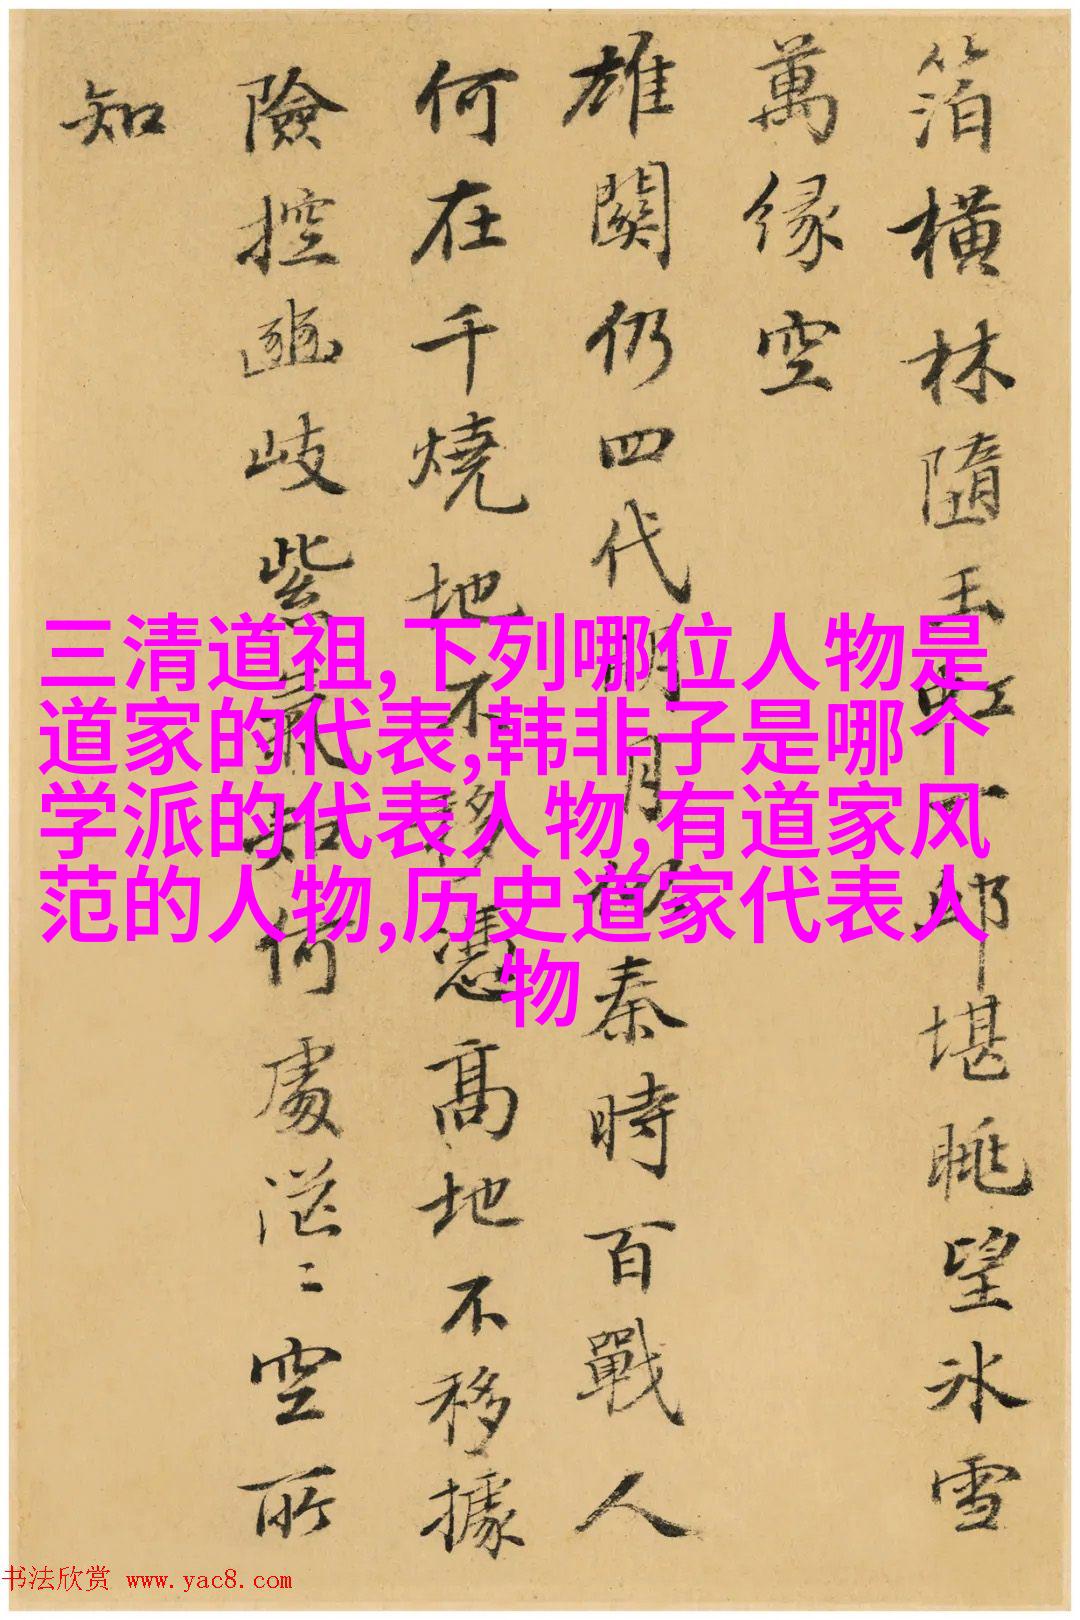 箔橫林隨玉虹下邱堪眺望冰雪
萬缘空
雄關仍四代明月秦時百戰人
何在千燒地不移憑高地不移據
險控豳岐紫氣知何處茫二空所
知
三清道祖,下列哪位人物是
道家的代表,韩非子是哪个
学派的代表人物,有道家风
范的人物,历史道家代表人
物
书法欣赏 www.yac8.com